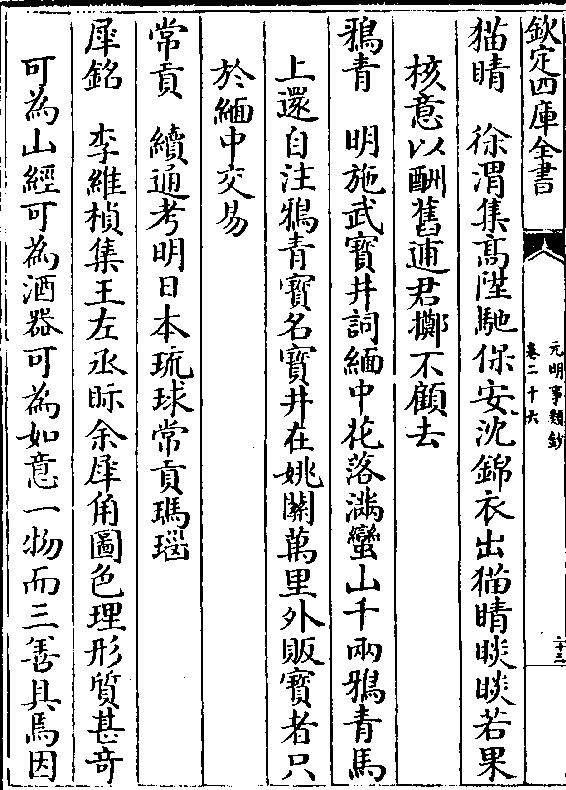 欽定四庫全書
元明事類鈔
卷二十六
十三
猫睛　徐渭集高陞馳保安沈錦衣出猫睛睒睒若果
核意以酬舊逋君擲不顧去
鴉青　明施武寶井詞緬中花落滿蠻山千兩鴉青馬
上還自注鴉青寶名寶井在姚關萬里外販寶者只
於緬中交易
常貢　續通考明日本琉球常貢瑪瑙
犀銘　李維楨集王左丞眎余犀角圖色理形質甚奇
可為山經可為酒器可為如意一物而三善具焉因